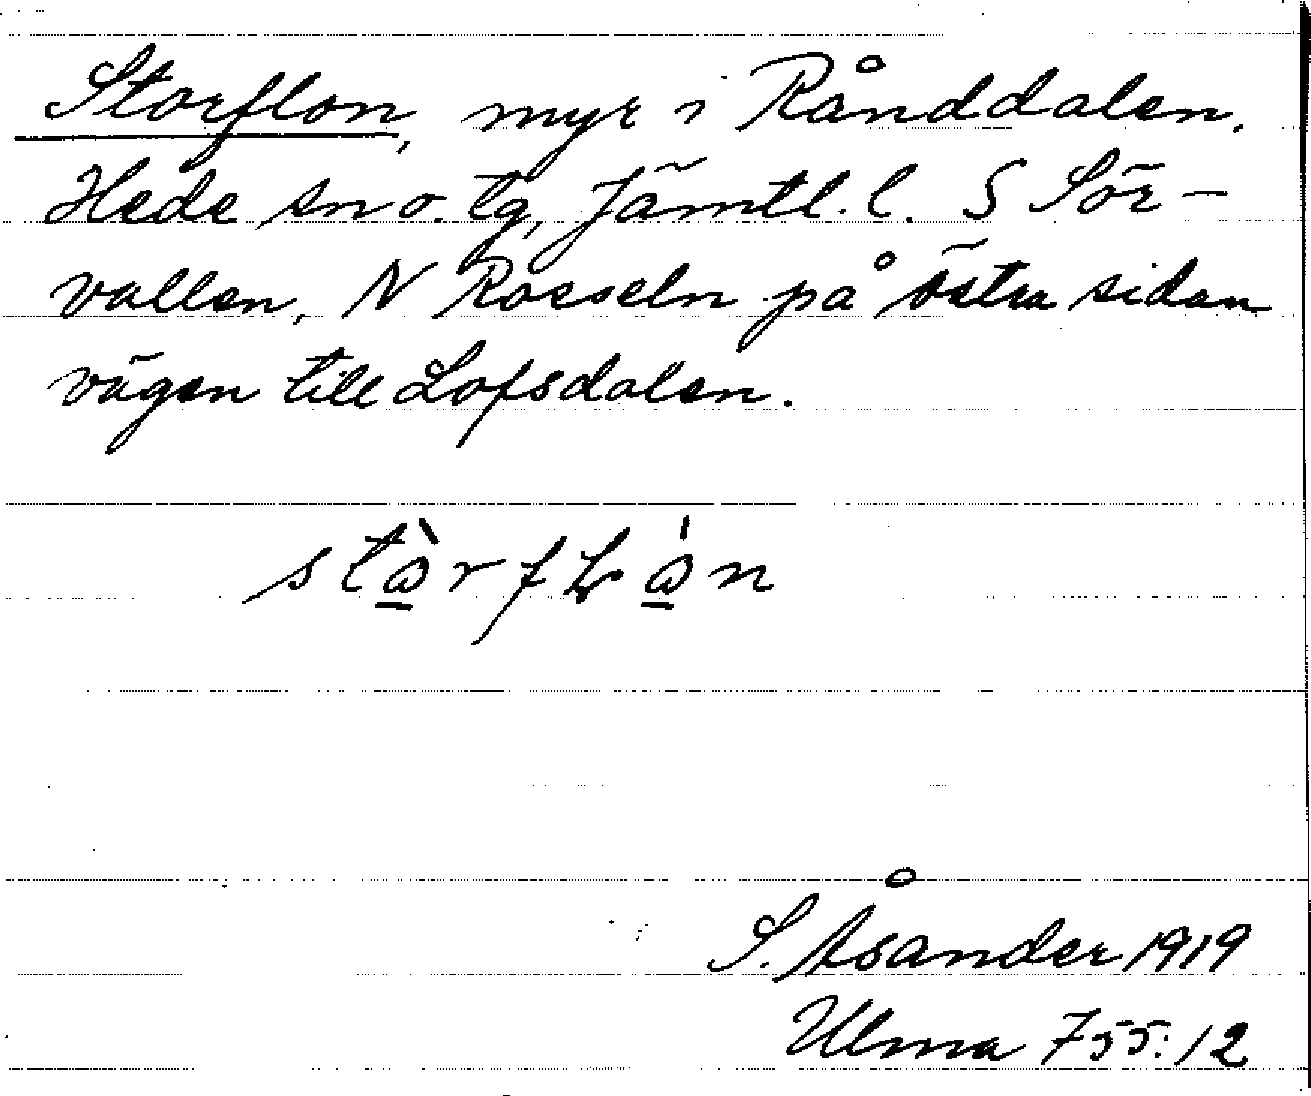 Storflon, myr i Rånddalen.
Hede sn o. tg, Jämtl. l. S Sör-
vallen, N Rosseln på östra sidan
vägen till Lofsdalen.
stὰ̠rfLά̠n
S. Åsander 1919
Ulma 755:12